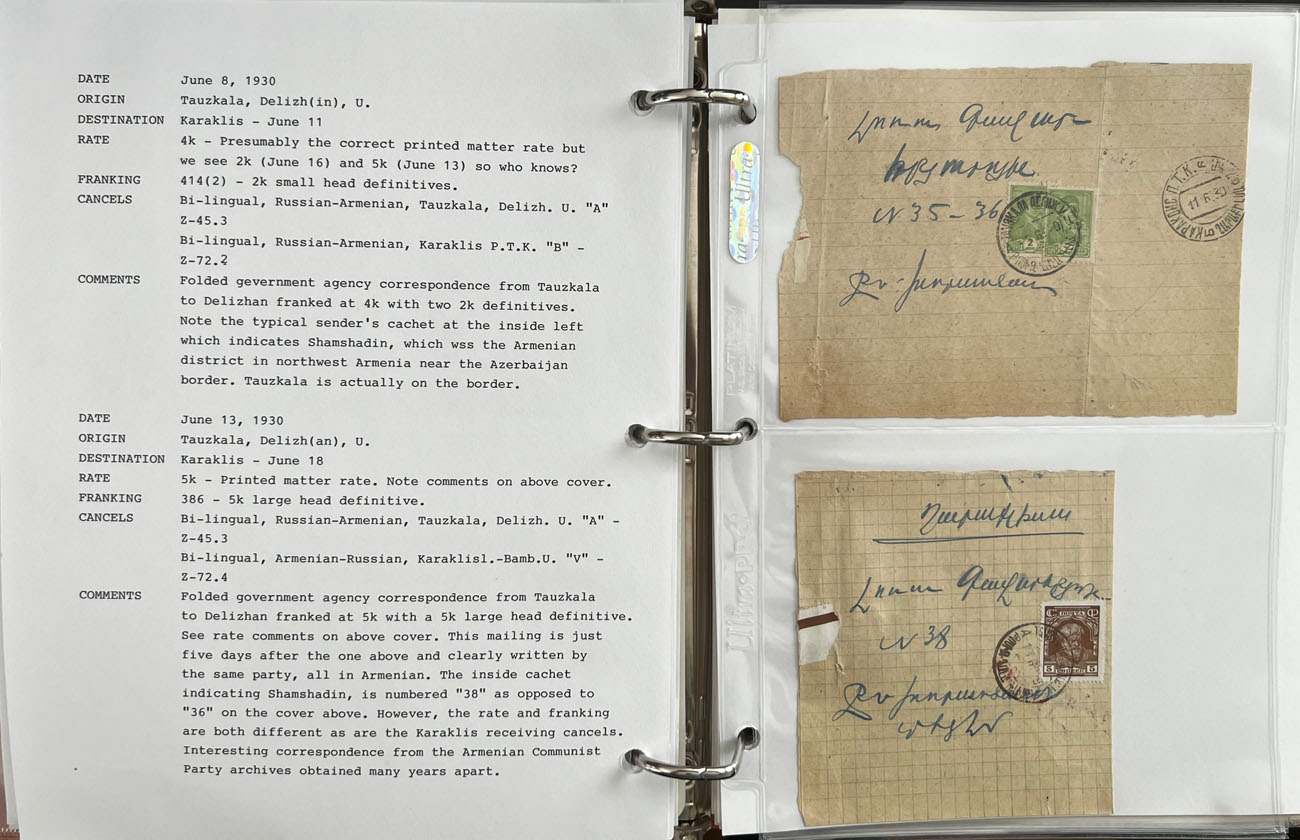 DATE June 8, 1930
ORIGIN Tauzkala, Delizh(in), U.
DESTINATION Karaklis - June 11
RATE 4k - Presumably the correct printed matter rate but
we see 2k (June 16) and 5k (June 13) so who knows?
FRANKING 414(2) - 2k small head definitives.
CANCELS Bi-lingual, Russian-Armenian, Tauzkala, Delizh. U. "A"
Z-45.3
Bi-lingual, Russian-Armenian, Karaklis P.T.K. "B" -
Z-72.2
COMMENTS Folded gevernment agency correspondence from Tauzkala
to Delizhan franked at 4k with two 2k definitives.
Note the typical sender's cachet at the inside left
which indicates Shamshadin, which wss the Armenian
district in northwest Armenia near the Azerbaijan
border. Tauzkala is actually on the border.
DATE June 13, 1930
ORIGIN Tauzkala, Delizh(an), U.
DESTINATION Karaklis - June 18
RATE 5k - Printed matter rate. Note comments on above cover.
FRANKING 386 - 5k large head definitive.
CANCELS Bi-lingual, Russian-Armenian, Tauzkala, Delizh. U. "A" -
Z-45.3
Bi-lingual, Armenian-Russian, Karaklisl.-Bamb.U. "V" -
Z-72.4
COMMENTS Folded government agency correspondence from Tauzkala
to Delizhan franked at 5k with a 5k large head definitive.
See rate comments on above cover. This mailing is just
five days after the one above and clearly written by
the same party, all in Armenian. The inside cachet
indicating Shamshadin, is numbered "38" as opposed to
"36" on the cover above. However, the rate and franking
are both different as are the Karaklis receiving cancels.
Interesting correspondence from the Armenian Communist
Party archives obtained many years apart.
N 35-36
2
11.6.30
П.Т.К.
N 38
ПОЧТА
5 5